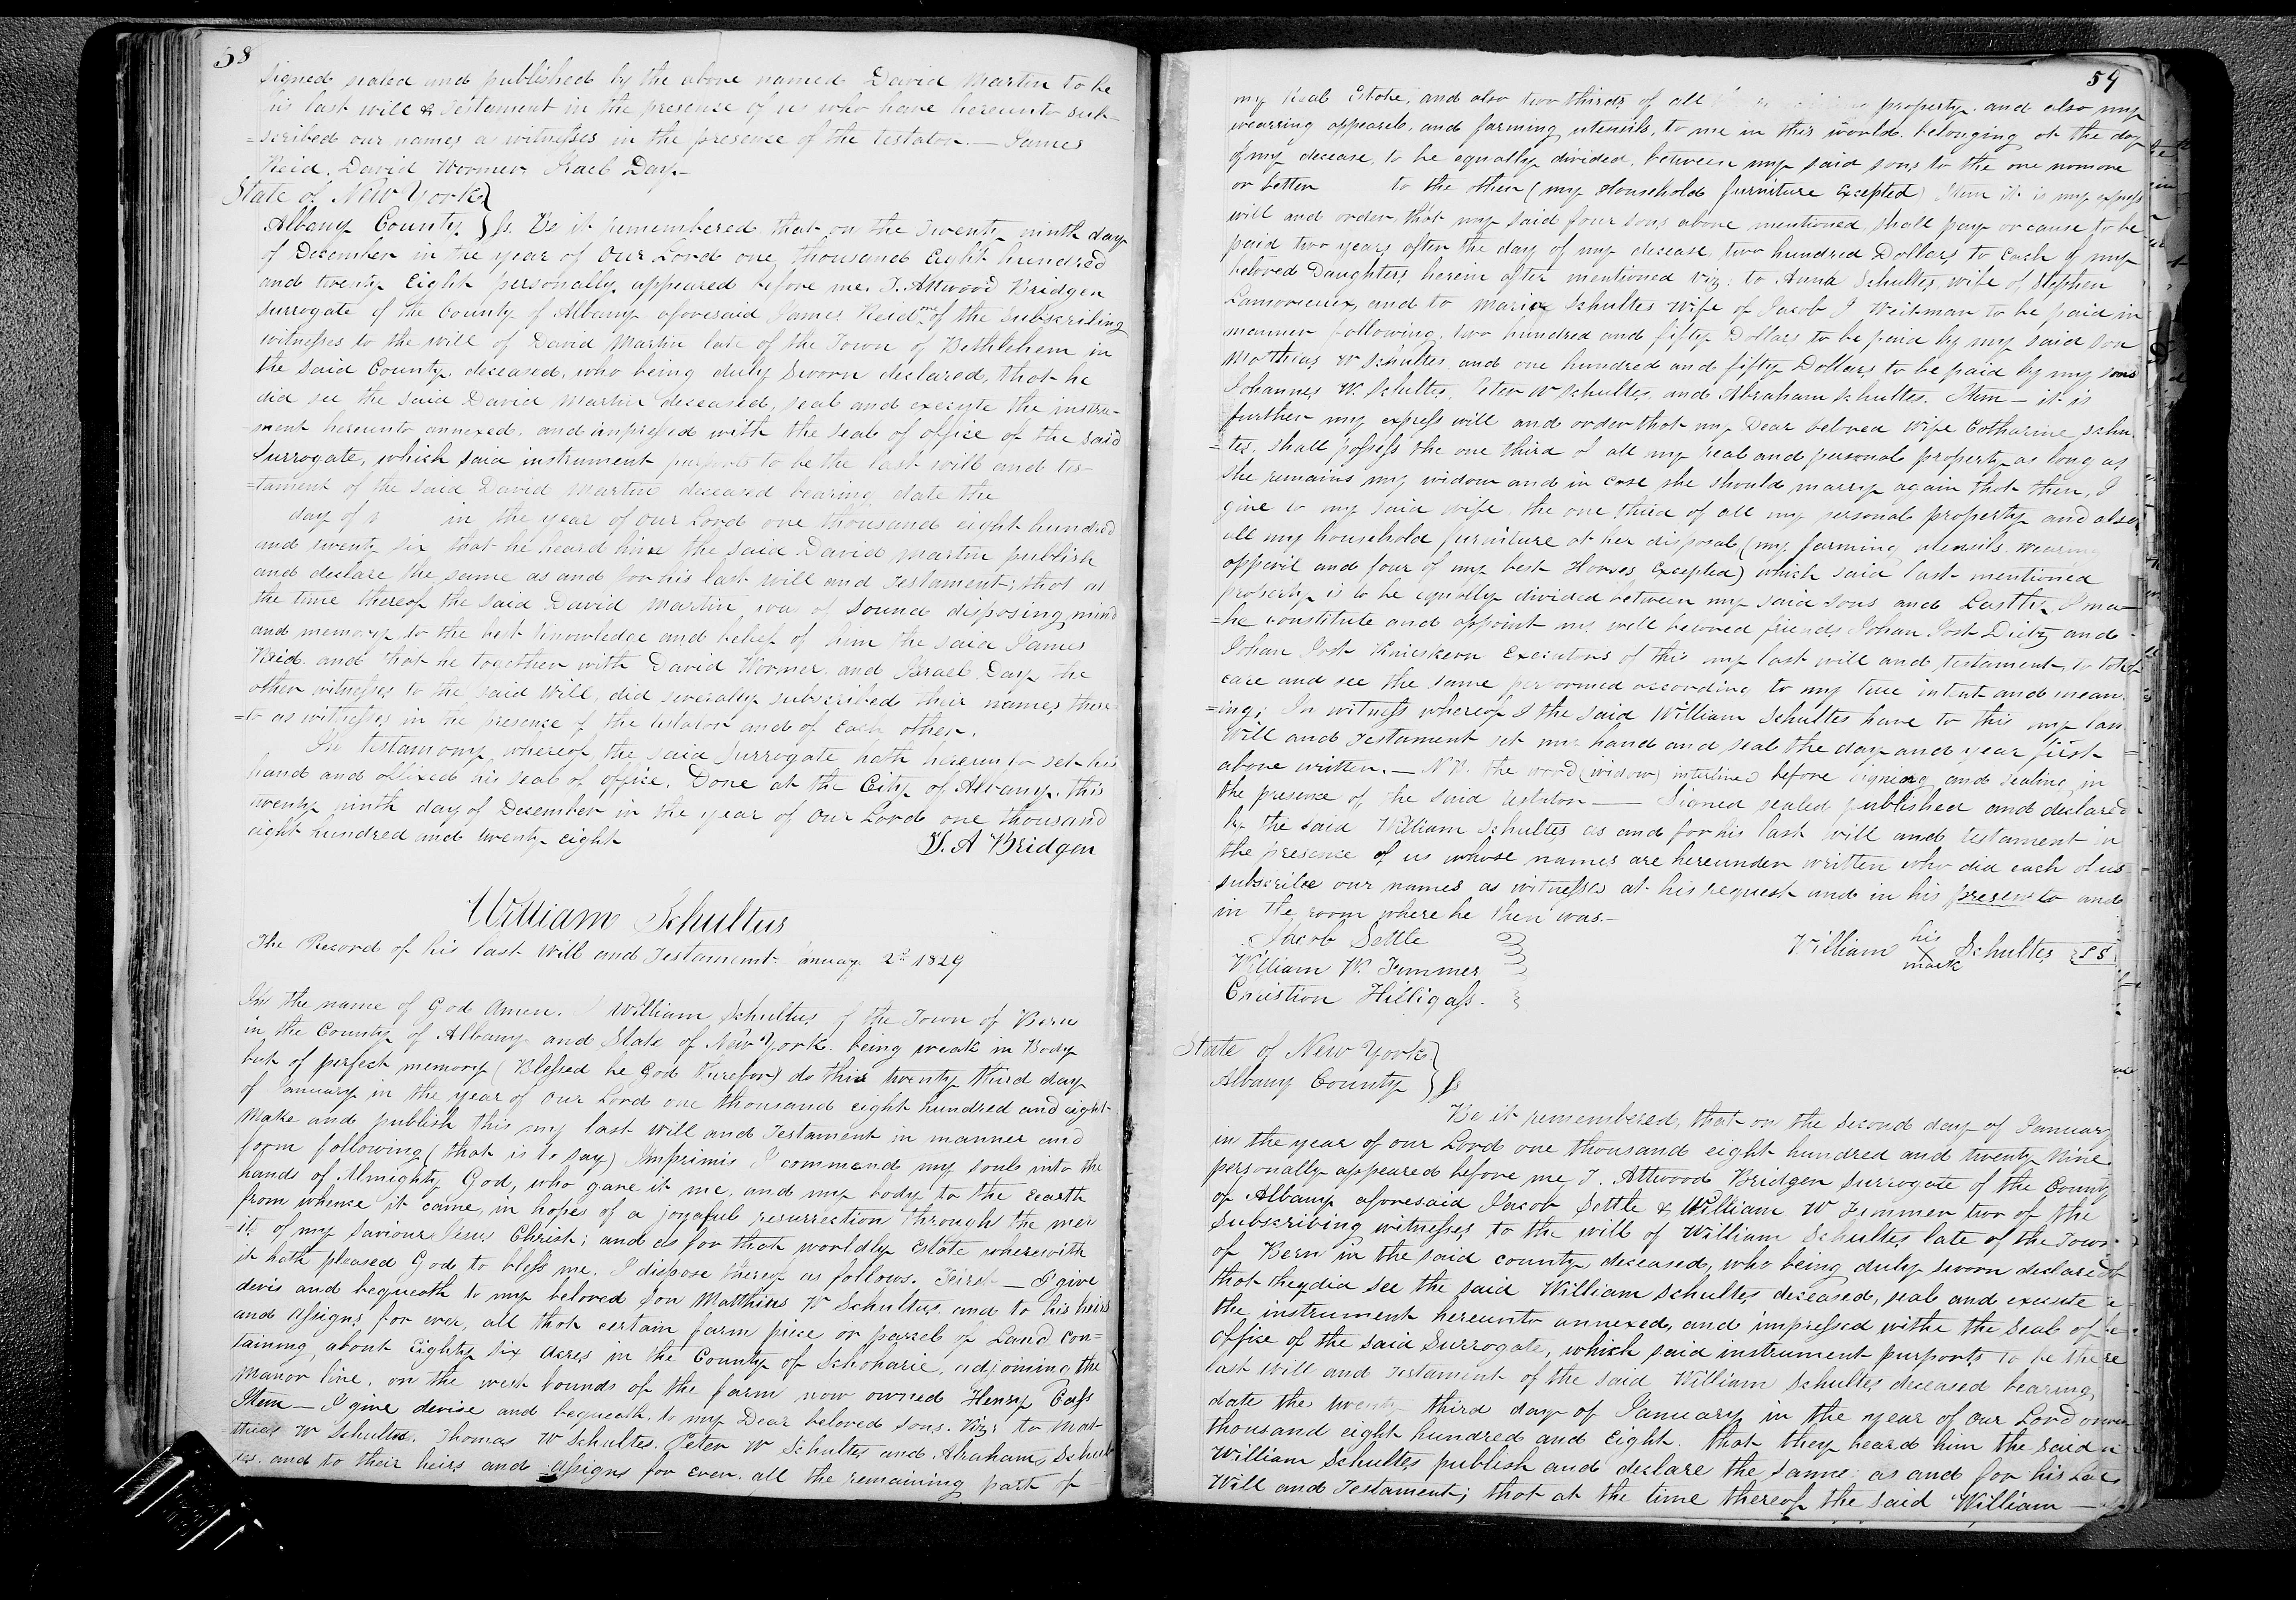 58
Signed sealed and published by the above named David Martin to be
his last will & Testament in the presence of us who have hereunto sub-
=scribed our names as witnesses in the presence of the testator. — James
Reid. David Wormer Israel Day.
State of New York }
Albany County } ss. Be it remembered that on the Twenty ninth day
of December in the year of Our Lord one thousand Eight hundred
and twenty Eight personally appeared before me, T. Attwood Bridgen
Surrogate of the County of Albany aforesaid James Reid one of the Subscribing
witnesses to the will of David Martin late of the Town of Bethlehem in
the said County, deceased, who being duly Sworn declared, that he
did see the said David Martin deceased, seal and execute the instru-
ment hereunto annexed, and impressed with the Seal of office of the said
Surrogate, which said instrument purports to be the last will and tes-
=tament of the said David Martin deceased bearing date the
day of in the year of our Lord one thousand eight hundred
and twenty six that he heard him the said David Martin publish
and declare the same as and for his last will and Testament; that at
the time thereof the said David Martin was of Sound disposing mind
and memory to the best knowledge and belief of him the said James
Reid. and that he together with David Wormer and Israel Day the
other witnesses to the said Will, did severally subscribed their names there-
=to as witnesses in the presence of the testator and of each other.
In testamony whereof the said Surrogate hath hereunto set his
hand and affixed his seal of office. Done at the City of Albany. this
twenty ninth day of December in the year of Our Lord one thousand
eight hundred and twenty eight T. A Bridgen
William Schultus
The Record of his last Will and Testament January 2d 1829
In the name of God Amen. I William Schultus of the Town of Bern
in the County of Albany and State of New York being weak in Body
but of perfect memory (Blessed be God therefor) do this twenty third day
of January in the year of Our Lord one thousand eight hundred and eight
Make and publish this my last Will and Testament in manner and
form following (that is to say) Imprimis I commend my soul into the
hands of Almighty God, who gave it me, and my body to the Earth
from whence it came, in hopes of a joyaful resurrection through the mer
=it of my Saviour Jesus Christ; and as for that worldly Estate wherewith
it hath pleased God to bless me. I dispose thereof as follows. First — I give
devis and bequeath to my beloved Son Matthies W Schultus and to his heirs
and assigns for ever, all that certain farm piece or parcel of Land con=
taining, about Eighty six Acres in the County of Schoharie, adjoining the
Manor line, on the west bounds of the farm now owned Henry Bass
Item — I give devise and bequeath, to my Dear beloved sons. Viz: to Mat-
thies W Schultes. Thomas W Schultes. Peter W Schultes and Abraham Schul
tes. and to their heirs and assigns for ever. all the remaining part of
59
my Real Estate, and also two thirds of all property, and also my
wearring apparels, and farming utensils, to me in this world belonging at the day
of my decease, to be equally divided, between my said sons to the one nomore
or better to the other (my Household furniture Excepted) Item it is my express
will and order, that my said four sons above mentioned, shall pay or cause to be
paid two years after the day of my decease, two hundred Dollars to Each of my
beloved Daughters herein after mentioned Viz: to Anna Schultes, wife of Stephen
Lamoreuex, and to Maria Schultes Wife of Jacob J Weitman to be paid in
manner following, two hundred and fifty Dollars to be paid by my said Son
Matthias W Schultes and one hundred and fifty Dollars to be paid by my sons
Johannes W. Schultes, Peter W Schultes, and Abraham Schultes. Item — it is
further my express will and order that my Dear beloved Wife Catharine Schu
=tes, shall possess the one third of all my real and personal property as long as
she remains my widow and in case she should marry again that then, I
give to my said wife, the one third of all my personal property and also
all my household furniture at her disposal (my farming utensils, wearing
apperil and four of my best Horses, Excepted) which said last mentioned
property is to be equally divided between my said sons and Lastly, I ma-
=ke constitute and appoint my well beloved friends Johan Jost Dietz and
Johan Jost Knieskern Executors of this my last will and testament, to take
care and see the same performed according to my true intent and mean-
=ing; In witness whereof I the said William Schultes have to this my last
Will and Testament set my hand and seal the day and year first
above written. — N.B. the word (widow) interlined before signing and sealing in
the presence of the said testator — Signed sealed published and declared
by the said William Schultes as and for his last will and testament in
the presence of us whose names are hereunder written who did each of us
subscribe our names as witnesses at his request and in his presents and
in the room where he then was.—
Jacob Settle
William W. Timmer
Cristion Hilligass.
William his X mark Schultes LS
State of New York }
Albany County } ss
Be it remembered, that on the Second day of January
in the year of our Lord one thousand eight hundred and twenty Nine
personally appeared before me T. Attwood Bridgen Surrogate of the County
of Albany aforesaid Jacob Settle & William W Timmer two of the
Subscribing witnesses, to the will of William Schultes late of the Town
of Bern in the said county deceased, who being duly sworn declared
that they did see the said William Schultes deceased, seal and execute
the instrument hereunto annexed, and impressed withe the Seal of
Office of the said Surrogate, which said instrument purports to be the
last Will and Testament of the said William Schultes deceased bearing
date the twenty third day of January in the year of our Lord one
thousand eight hundred and Eight. that they heard him the said
William Schultes publish and declare the same as and for his Las
Will and Testament; that at the time thereof the said William —